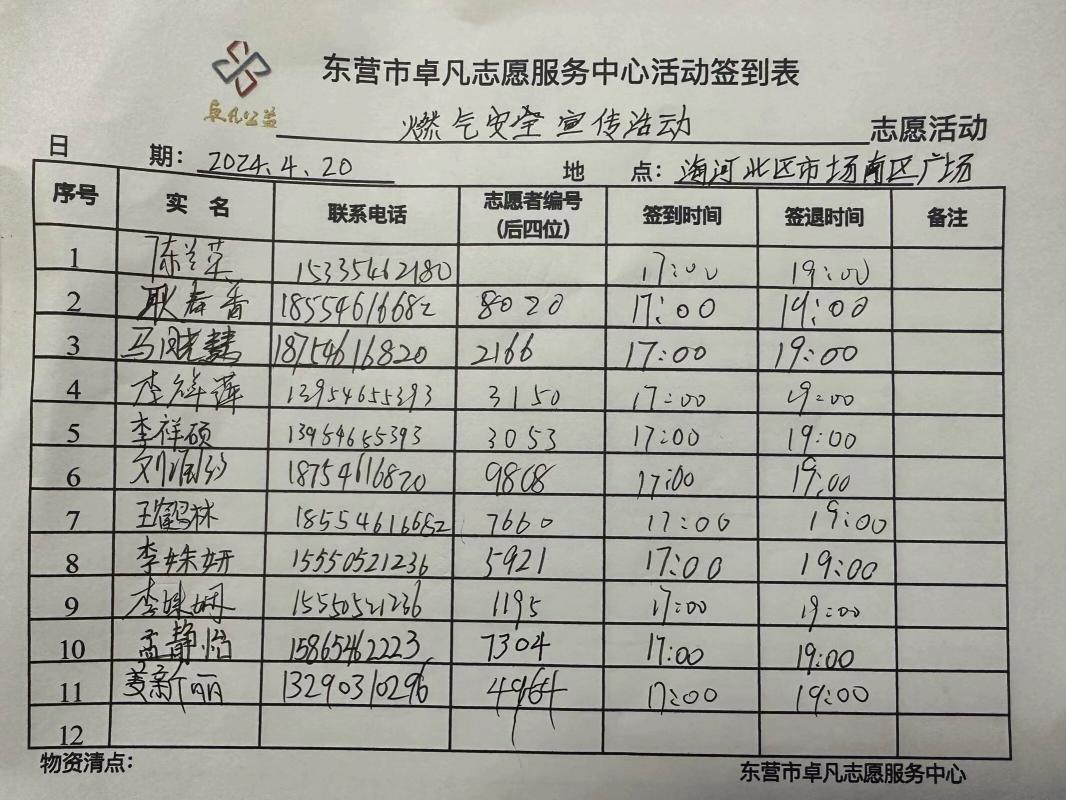 东营市卓凡志愿服务中心活动签到表
卓凡公益
燃气安全宣传活动 志愿活动
日期：2024.4.20 地点：海河北区市场南区广场
序号 实名 联系电话 志愿者编号（后四位） 签到时间 签退时间 备注
1 陈兰英 15335462180 17:00 19:00
2 耿春香 18554616682 8020 17:00 19:00
3 马晓慧 18754616820 2166 17:00 19:00
4 李祥莲 13954655393 3150 17:00 19:00
5 李祥硕 13954655393 3053 17:00 19:00
6 刘 18754616820 9808 17:00 19:00
7 王鹤林 18554616682 7660 17:00 19:00
8 李姝妍 15550521236 5921 17:00 19:00
9 李姝娴 15550521236 1195 17:00 19:00
10 孟静怡 15865462223 7304 17:00 19:00
11 姜新丽 13290310296 4964 17:00 19:00
12
物资清点：
东营市卓凡志愿服务中心